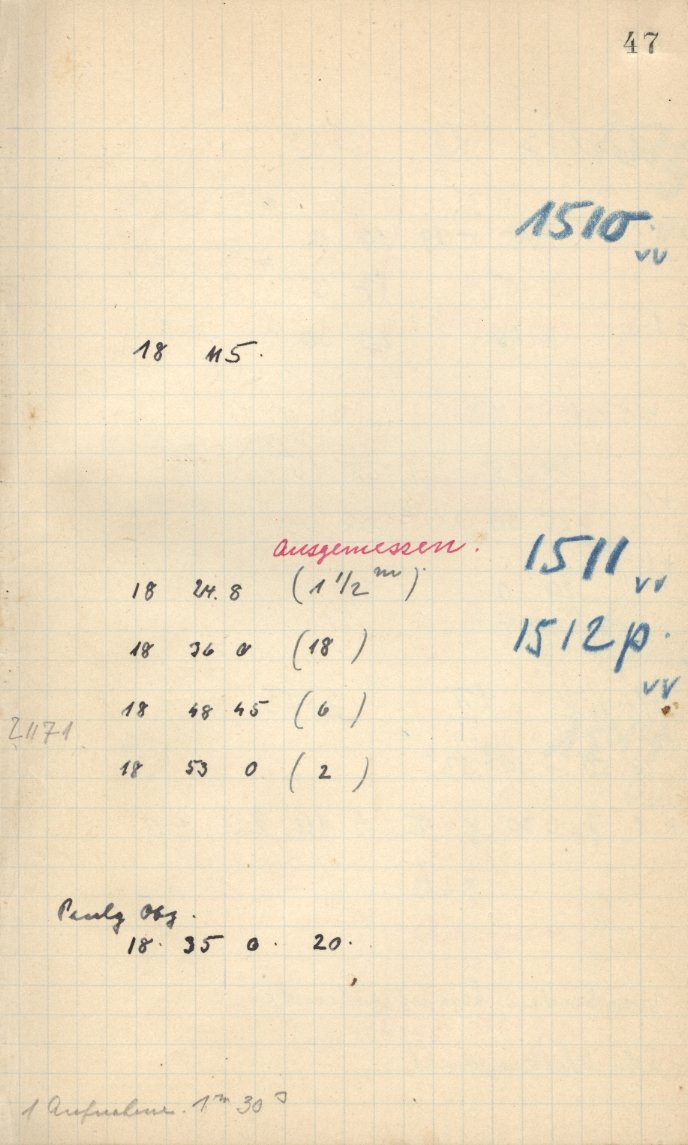 47
1510
vv
18 45.
Ausgemessen.
1511 vv
18 24. 8 (1 1/2 m)
1512p.
vv
18 36 0 (18)
18 48 45 (6)
Z1171
18 53 0 (2)
Obj.
18. 35 0. 20.
1 Aufnahme. 1m 30s